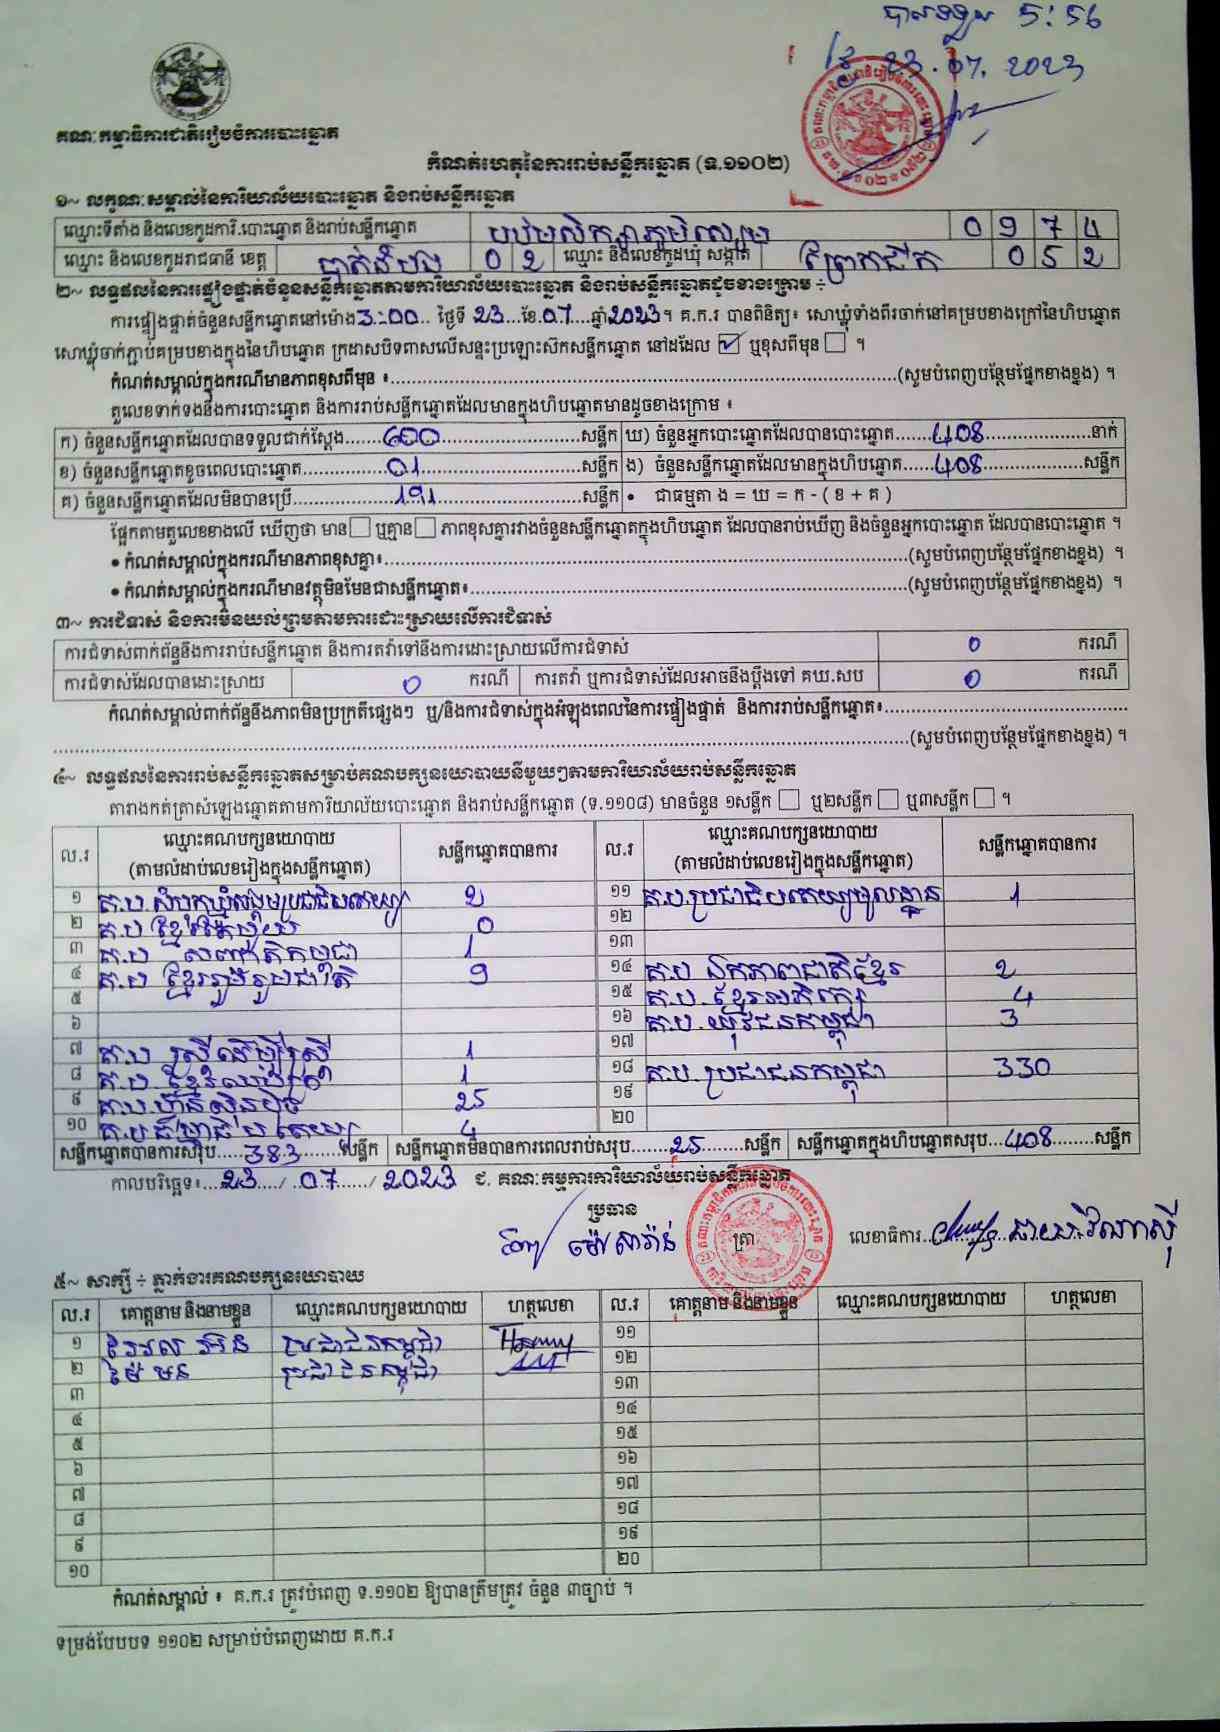 បានទទួល 5:56
ថ្ងៃ 23.07.2023
គណៈកម្មាធិការជាតិរៀបចំការបោះឆ្នោត
កំណត់ហេតុនៃការរាប់សន្លឹកឆ្នោត (ទ.១១០២)
១~ លក្ខណៈសម្គាល់នៃការិយាល័យបោះឆ្នោត និងរាប់សន្លឹកឆ្នោត
ឈ្មោះទីតាំង និងលេខកូដការិ.បោះឆ្នោត និងរាប់សន្លឹកឆ្នោត 0 9 7 4
ឈ្មោះ និងលេខកូដរាជធានី ខេត្ត បាត់ដំបង 0 2 ឈ្មោះ និងលេខកូដឃុំ សង្កាត់ ព្រែកជីក 0 5 2
២~ លទ្ធផលនៃការផ្ទៀងផ្ទាត់ចំនួនសន្លឹកឆ្នោតតាមការិយាល័យបោះឆ្នោត និងរាប់សន្លឹកឆ្នោតដូចខាងក្រោម ÷
ការផ្ទៀងផ្ទាត់ចំនួនសន្លឹកឆ្នោតនៅម៉ោង 3:00 ថ្ងៃទី 23 ខែ 07 ឆ្នាំ 2023។ គ.ក.រ បានពិនិត្យ៖ សោឃ្លុំទាំងពីរចាក់នៅគម្របខាងក្រៅនៃហិបឆ្នោត
សោឃ្លុំចាក់ភ្ជាប់គម្របខាងក្នុងនៃហិបឆ្នោត ក្រដាសបិទពាសលើសន្ទះប្រឡោះស៊កសន្លឹកឆ្នោត នៅដដែល ☑ ឬខុសពីមុន ☐ ។
កំណត់សម្គាល់ក្នុងករណីមានភាពខុសពីមុន ៖ (សូមបំពេញបន្ថែមផ្នែកខាងខ្នង) ។
តួលេខទាក់ទងនឹងការបោះឆ្នោត និងការរាប់សន្លឹកឆ្នោតដែលមានក្នុងហិបឆ្នោតមានដូចខាងក្រោម ៖
ក) ចំនួនសន្លឹកឆ្នោតដែលបានទទួលជាក់ស្តែង 600 សន្លឹក ឃ) ចំនួនអ្នកបោះឆ្នោតដែលបានបោះឆ្នោត 408 នាក់
ខ) ចំនួនសន្លឹកឆ្នោតខូចពេលបោះឆ្នោត 01 សន្លឹក ង) ចំនួនសន្លឹកឆ្នោតដែលមានក្នុងហិបឆ្នោត 408 សន្លឹក
គ) ចំនួនសន្លឹកឆ្នោតដែលមិនបានប្រើ 191 សន្លឹក • ជាធម្មតា ង = ឃ = ក - ( ខ + គ )
ផ្អែកតាមតួលេខខាងលើ ឃើញថា មាន ☐ ឬគ្មាន ☐ ភាពខុសគ្នារវាងចំនួនសន្លឹកឆ្នោតក្នុងហិបឆ្នោត ដែលបានរាប់ឃើញ និងចំនួនអ្នកបោះឆ្នោត ដែលបានបោះឆ្នោត ។
• កំណត់សម្គាល់ក្នុងករណីមានភាពខុសគ្នា៖ (សូមបំពេញបន្ថែមផ្នែកខាងខ្នង) ។
• កំណត់សម្គាល់ក្នុងករណីមានវត្ថុមិនមែនជាសន្លឹកឆ្នោត៖ (សូមបំពេញបន្ថែមផ្នែកខាងខ្នង) ។
៣~ ការជំទាស់ និងការមិនយល់ព្រមតាមការដោះស្រាយលើការជំទាស់
ការជំទាស់ពាក់ព័ន្ធនឹងការរាប់សន្លឹកឆ្នោត និងការតវ៉ាទៅនឹងការដោះស្រាយលើការជំទាស់ 0 ករណី
ការជំទាស់ដែលបានដោះស្រាយ 0 ករណី ការតវ៉ា ឬការជំទាស់ដែលអាចនឹងប្តឹងទៅ គឃ.សប 0 ករណី
កំណត់សម្គាល់ពាក់ព័ន្ធនឹងភាពមិនប្រក្រតីផ្សេងៗ ឬ/និងការជំទាស់ក្នុងអំឡុងពេលនៃការផ្ទៀងផ្ទាត់ និងការរាប់សន្លឹកឆ្នោត៖
(សូមបំពេញបន្ថែមផ្នែកខាងខ្នង) ។
៤~ លទ្ធផលនៃការរាប់សន្លឹកឆ្នោតសម្រាប់គណបក្សនយោបាយនីមួយៗតាមការិយាល័យរាប់សន្លឹកឆ្នោត
តារាងកត់ត្រាសំឡេងឆ្នោតតាមការិយាល័យបោះឆ្នោត និងរាប់សន្លឹកឆ្នោត (ទ.១១០៨) មានចំនួន ១សន្លឹក ☐ ឬ២សន្លឹក ☐ ឬ៣សន្លឹក ☐ ។
ល.រ ឈ្មោះគណបក្សនយោបាយ (តាមលំដាប់លេខរៀងក្នុងសន្លឹកឆ្នោត) សន្លឹកឆ្នោតបានការ ល.រ ឈ្មោះគណបក្សនយោបាយ (តាមលំដាប់លេខរៀងក្នុងសន្លឹកឆ្នោត) សន្លឹកឆ្នោតបានការ
១ គ.ប.សំបុកឃ្មុំសង្គមប្រជាធិបតេយ្យ 2 ១១ គ.ប.ប្រជាធិបតេយ្យមូលដ្ឋាន 1
២ គ.ប ខ្មែរតែមួយ 0 ១២
៣ គ.ប សញ្ជាតិកម្ពុជា 1 ១៣
៤ គ.ប ខ្មែររួបរួមជាតិ 9 ១៤ គ.ប ឯកភាពជាតិខ្មែរ 2
៥ ១៥ គ.ប.ខ្មែរអភិរក្ស 4
៦ ១៦ គ.ប.យុវជនកម្ពុជា 3
៧ គ.ប ស្រីដើម្បីស្រី 1 ១៧
៨ គ.ប.ខ្មែរឈប់ក្រ 1 ១៨ គ.ប.ប្រជាជនកម្ពុជា 330
៩ គ.ប.ហ៊្វុនស៊ិនប៉ិច 25 ១៩
១០ គ.ប ធម្មាធិបតេយ្យ 4 ២០
សន្លឹកឆ្នោតបានការសរុប 383 សន្លឹក សន្លឹកឆ្នោតមិនបានការពេលរាប់សរុប 25 សន្លឹក សន្លឹកឆ្នោតក្នុងហិបឆ្នោតសរុប 408 សន្លឹក
កាលបរិច្ឆេទ៖ 23 / 07 / 2023 ជ. គណៈកម្មការការិយាល័យរាប់សន្លឹកឆ្នោត
ប្រធាន
ម៉ៅ សារ៉ាន់ ត្រា លេខាធិការ
៥~ សាក្សី ÷ ភ្នាក់ងារគណបក្សនយោបាយ
ល.រ គោត្តនាម និងនាមខ្លួន ឈ្មោះគណបក្សនយោបាយ ហត្ថលេខា ល.រ គោត្តនាម និងនាមខ្លួន ឈ្មោះគណបក្សនយោបាយ ហត្ថលេខា
១ ប្រជាជនកម្ពុជា ១១
២ ម៉ៃ មន ប្រជាជនកម្ពុជា ១២
៣ ១៣
៤ ១៤
៥ ១៥
៦ ១៦
៧ ១៧
៨ ១៨
៩ ១៩
១០ ២០
កំណត់សម្គាល់ ៖ គ.ក.រ ត្រូវបំពេញ ទ.១១០២ ឱ្យបានត្រឹមត្រូវ ចំនួន ៣ច្បាប់ ។
ទម្រង់បែបបទ ១១០២ សម្រាប់បំពេញដោយ គ.ក.រ